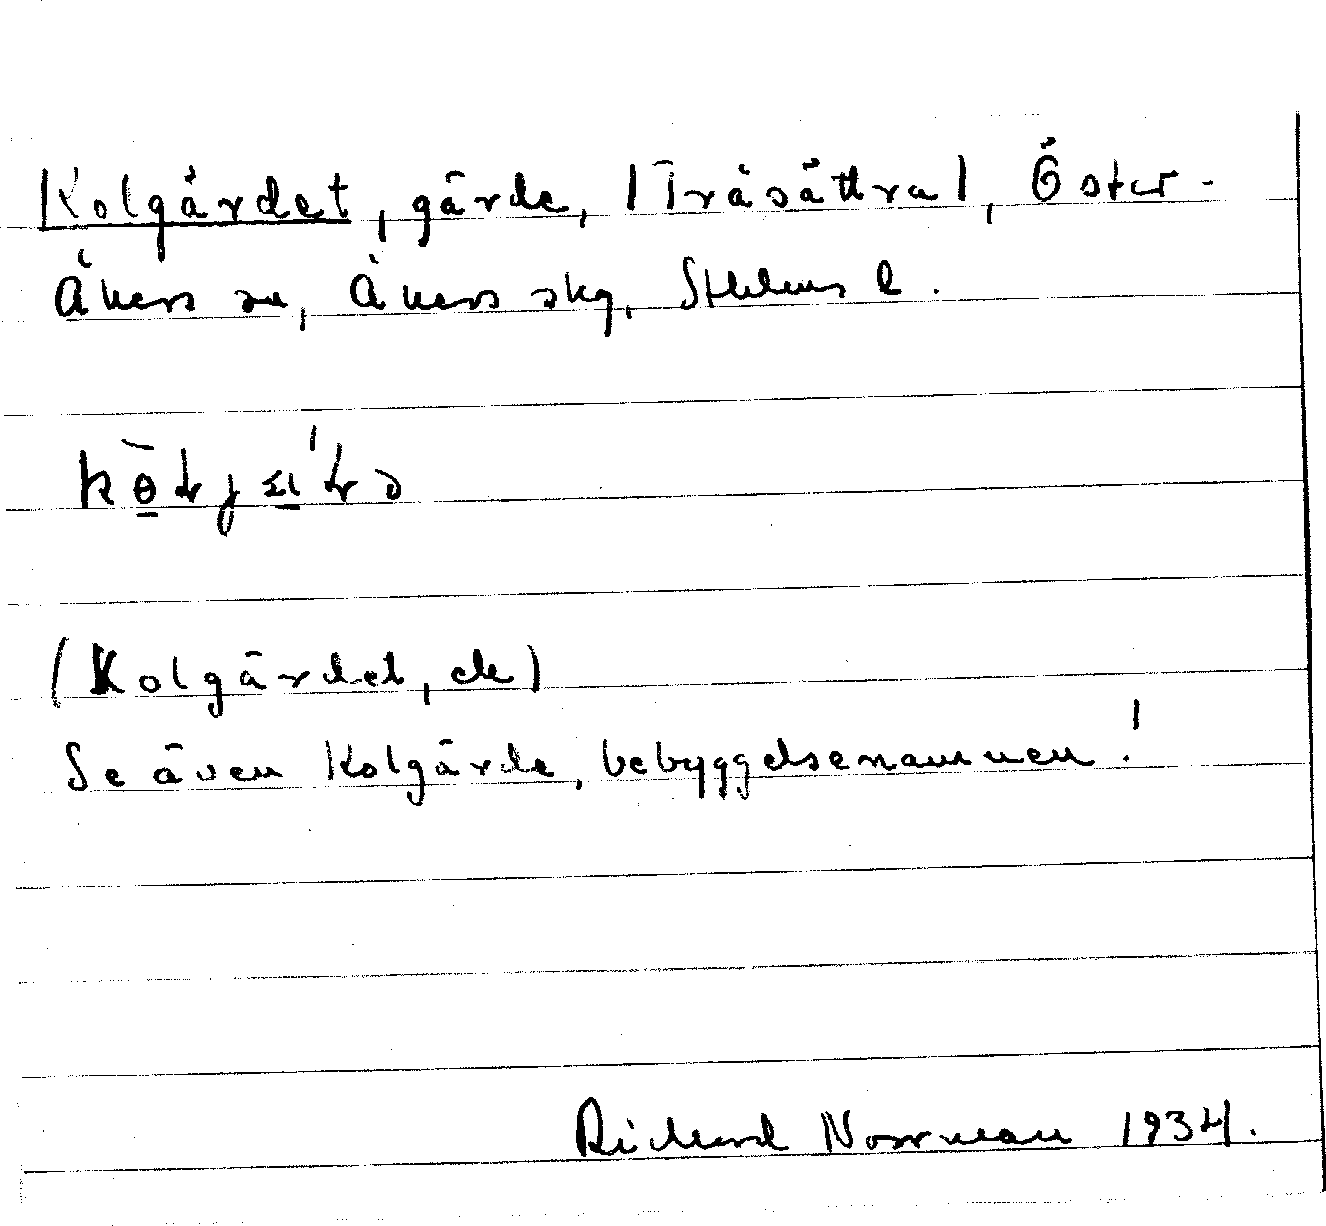 Kolgärdet, gärde, |Träsättra|, Öster-
Åkers sn, Åkers skg, Sthlms l.
(Kolgärdet, de)
Se även Kolgärde, bebyggelsenamnen!
Richard Norrman 1934.